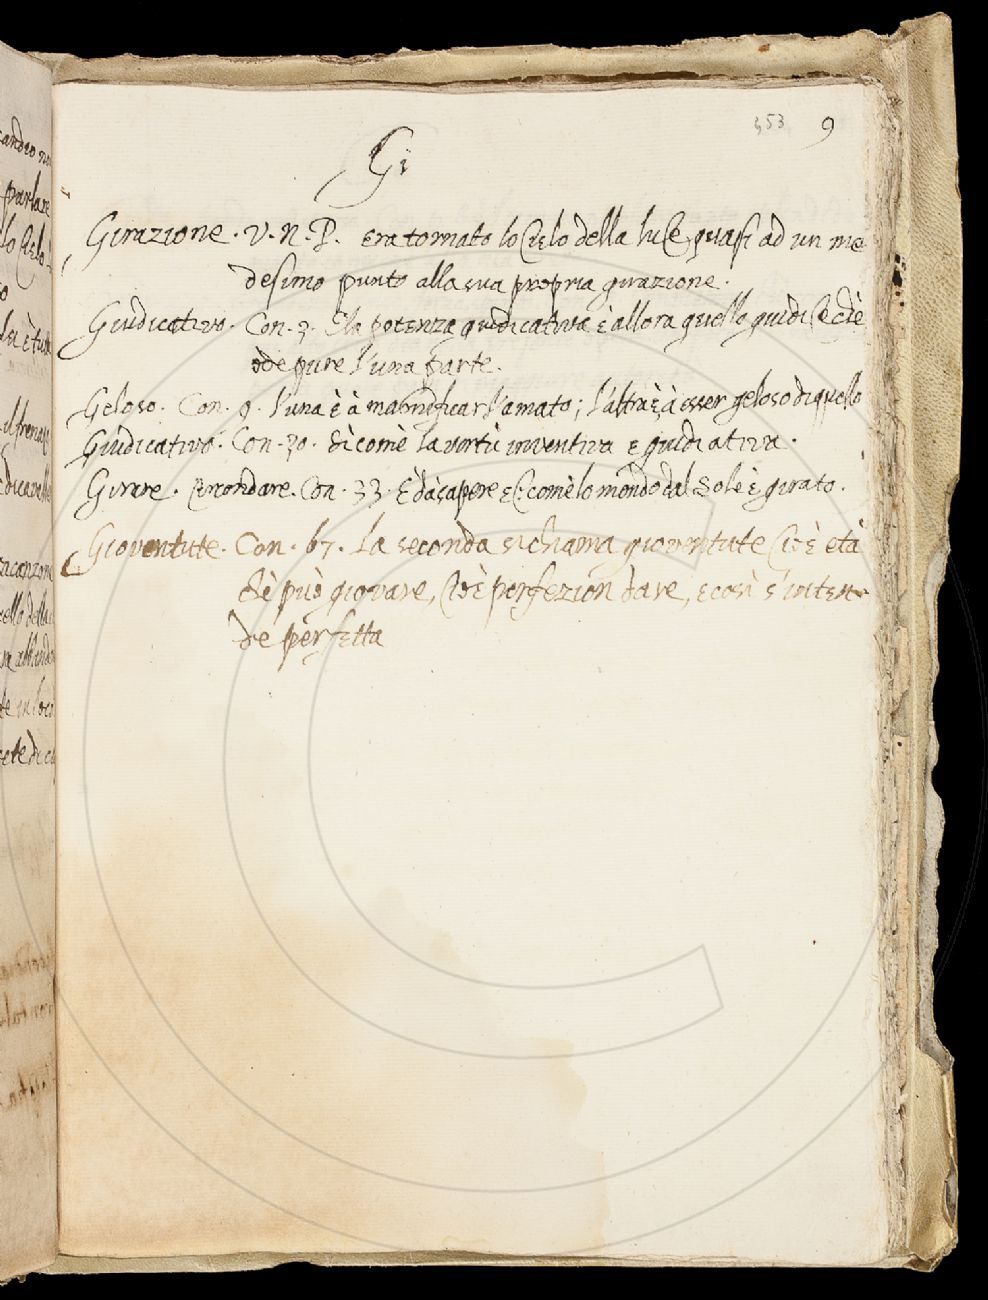 353 9
Gi
Girazione. V. N. P. era tornato lo Cielo della luce quasi ad un me
desimo punto alla sua propria girazione.
Giudicativo. Con. 3. La potenza giudicativa è allora quello giudice che
ode pure l'una parte.
Geloso. Con. 9. l'una è à magnificar l'amato; l'altra è à esser geloso di quello
Giudicativo. Con. 30. sì come la virtù inventiva e giudicativa.
Girare. Circondare. Con. 33. È dà sapere come lo mondo dal Sole è girato.
Gioventute. Con. 67. La seconda si chiama gioventute Cioè età
chè può giovare, Cioè perfezion dare, e così s'inten-
de perfetta